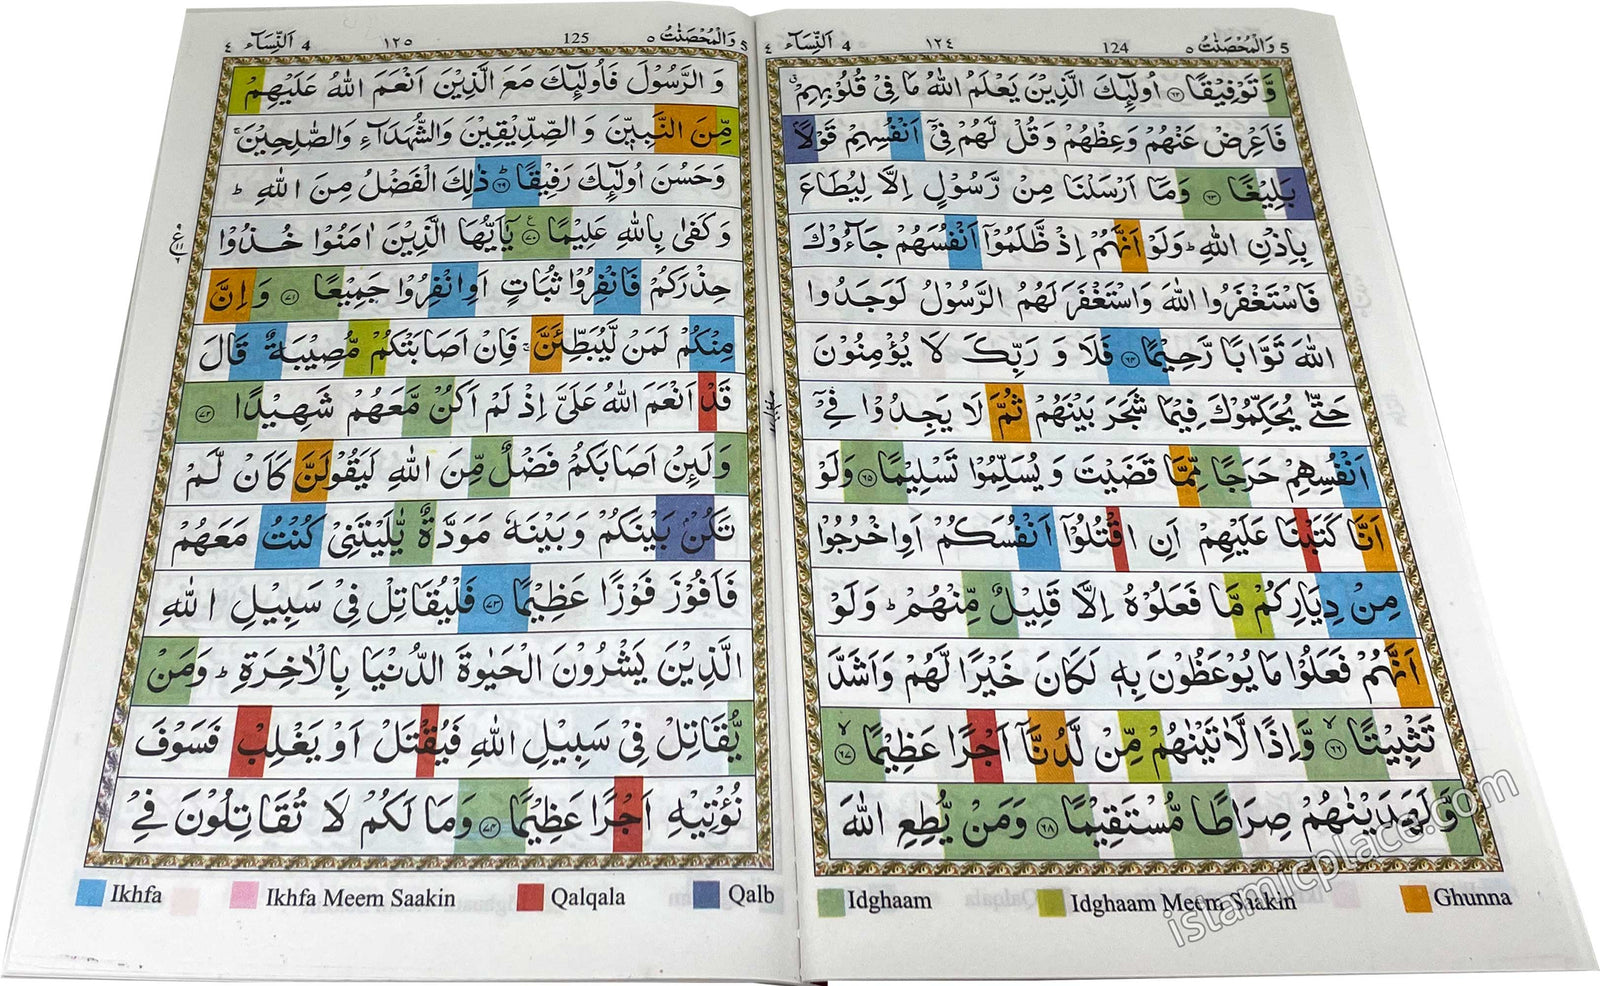 5 وَالْمُحْصَنٰتُ ٥ 124 ١٢٤ 4 اَلنِّسَآء ٤
وَّ تَوْفِيْقًا ٦٢ اُولٰٓئِكَ الَّذِيْنَ يَعْلَمُ اللّٰهُ مَا فِىْ قُلُوْبِهِمْ ق
فَاَعْرِضْ عَنْهُمْ وَعِظْهُمْ وَقُلْ لَّهُمْ فِىْٓ اَنْفُسِهِمْ قَوْلًاۢ
بَلِيْغًا ٦٣ وَمَآ اَرْسَلْنَا مِنْ رَّسُوْلٍ اِلَّا لِيُطَاعَ
بِاِذْنِ اللّٰهِ ط وَلَوْ اَنَّهُمْ اِذْ ظَّلَمُوْٓا اَنْفُسَهُمْ جَآءُوْكَ
فَاسْتَغْفَرُوا اللّٰهَ وَاسْتَغْفَرَ لَهُمُ الرَّسُوْلُ لَوَجَدُوا
اللّٰهَ تَوَّابًا رَّحِيْمًا ٦٤ فَلَا وَ رَبِّكَ لَا يُؤْمِنُوْنَ
حَتّٰى يُحَكِّمُوْكَ فِيْمَا شَجَرَ بَيْنَهُمْ ثُمَّ لَا يَجِدُوْا فِىْٓ
اَنْفُسِهِمْ حَرَجًا مِّمَّا قَضَيْتَ وَ يُسَلِّمُوْا تَسْلِيْمًا ٦٥ وَلَوْ
اَنَّا كَتَبْنَا عَلَيْهِمْ اَنِ اقْتُلُوْٓا اَنْفُسَكُمْ اَوِ اخْرُجُوْا
مِنْ دِيَارِكُمْ مَّا فَعَلُوْهُ اِلَّا قَلِيْلٌ مِّنْهُمْ ط وَلَوْ
اَنَّهُمْ فَعَلُوْا مَا يُوْعَظُوْنَ بِهٖ لَكَانَ خَيْرًا لَّهُمْ وَاَشَدَّ
تَثْبِيْتًا لا ٦٦ وَّاِذًا لَّاٰتَيْنٰهُمْ مِّنْ لَّدُنَّآ اَجْرًا عَظِيْمًا لا ٦٧
وَّلَهَدَيْنٰهُمْ صِرَاطًا مُّسْتَقِيْمًا ٦٨ وَمَنْ يُّطِعِ اللّٰهَ
Idghaam Idghaam Meem Saakin Ghunna
5 وَالْمُحْصَنٰتُ ٥ 125 ١٢٥ 4 اَلنِّسَآء ٤
وَ الرَّسُوْلَ فَاُولٰٓئِكَ مَعَ الَّذِيْنَ اَنْعَمَ اللّٰهُ عَلَيْهِمْ
مِّنَ النَّبِيّٖنَ وَ الصِّدِّيْقِيْنَ وَالشُّهَدَآءِ وَالصّٰلِحِيْنَ ج
وَحَسُنَ اُولٰٓئِكَ رَفِيْقًا ط ٦٩ ذٰلِكَ الْفَضْلُ مِنَ اللّٰهِ ط
وَكَفٰى بِاللّٰهِ عَلِيْمًا ع ٧٠ يٰٓاَيُّهَا الَّذِيْنَ اٰمَنُوْا خُذُوْا
حِذْرَكُمْ فَانْفِرُوْا ثُبَاتٍ اَوِانْفِرُوْا جَمِيْعًا ٧١ وَ اِنَّ
مِنْكُمْ لَمَنْ لَّيُبَطِّئَنَّ ج فَاِنْ اَصَابَتْكُمْ مُّصِيْبَةٌ قَالَ
قَدْ اَنْعَمَ اللّٰهُ عَلَىَّ اِذْ لَمْ اَكُنْ مَّعَهُمْ شَهِيْدًا ٧٢
وَلَئِنْ اَصَابَكُمْ فَضْلٌ مِّنَ اللّٰهِ لَيَقُوْلَنَّ كَاَنْ لَّمْ
تَكُنْۢ بَيْنَكُمْ وَبَيْنَهٗ مَوَدَّةٌ يّٰلَيْتَنِىْ كُنْتُ مَعَهُمْ
فَاَفُوْزَ فَوْزًا عَظِيْمًا ٧٣ فَلْيُقَاتِلْ فِىْ سَبِيْلِ اللّٰهِ
الَّذِيْنَ يَشْرُوْنَ الْحَيٰوةَ الدُّنْيَا بِالْاٰخِرَةِ ط وَمَنْ
يُّقَاتِلْ فِىْ سَبِيْلِ اللّٰهِ فَيُقْتَلْ اَوْ يَغْلِبْ فَسَوْفَ
نُؤْتِيْهِ اَجْرًا عَظِيْمًا ٧٤ وَمَا لَكُمْ لَا تُقَاتِلُوْنَ فِىْ
Ikhfa Ikhfa Meem Saakin Qalqala Qalb
islamicplace.com